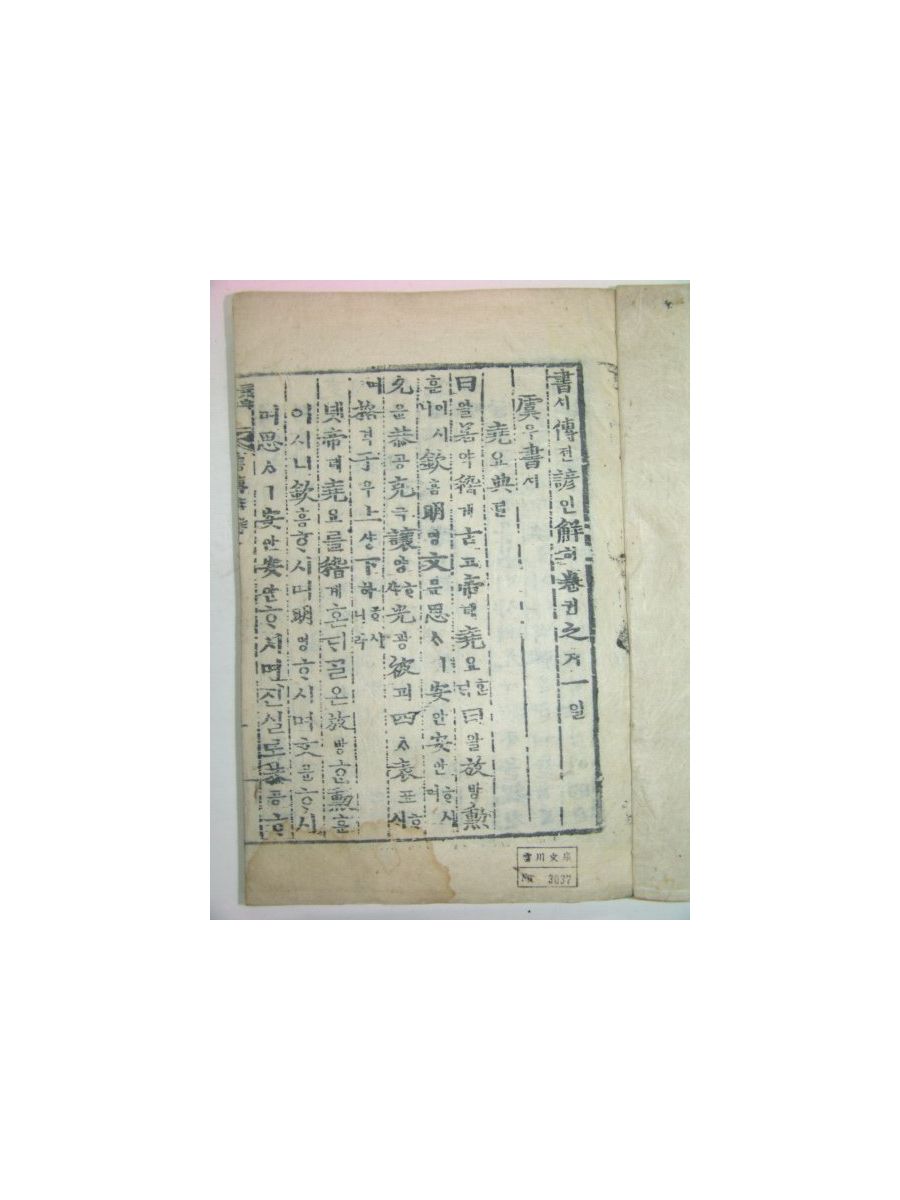 書셔傳젼諺언解ᄒᆡ卷권之지一일
虞우書셔
堯요典뎐
曰왈若약稽계古고帝뎨堯요ᄒᆞᆫᄃᆡ曰왈放방勳
훈이시니欽흠明명文문思ᄉᆞㅣ安안安안ᄒᆞ시며
允윤恭공克극讓양ᄒᆞ샤光광被피四ᄉᆞ表표ᄒᆞ시
며格격于우上샹下하ᄒᆞ시니라
녯帝뎨堯요를稽계혼ᄃᆡᄀᆞᆯ온放방ᄒᆞᆫ勳훈
이시니欽흠ᄒᆞ시며明명ᄒᆞ시며文문ᄒᆞ시
며思ᄉᆞㅣ安안安안ᄒᆞ시며진실로恭공ᄒᆞ
文庫
3037